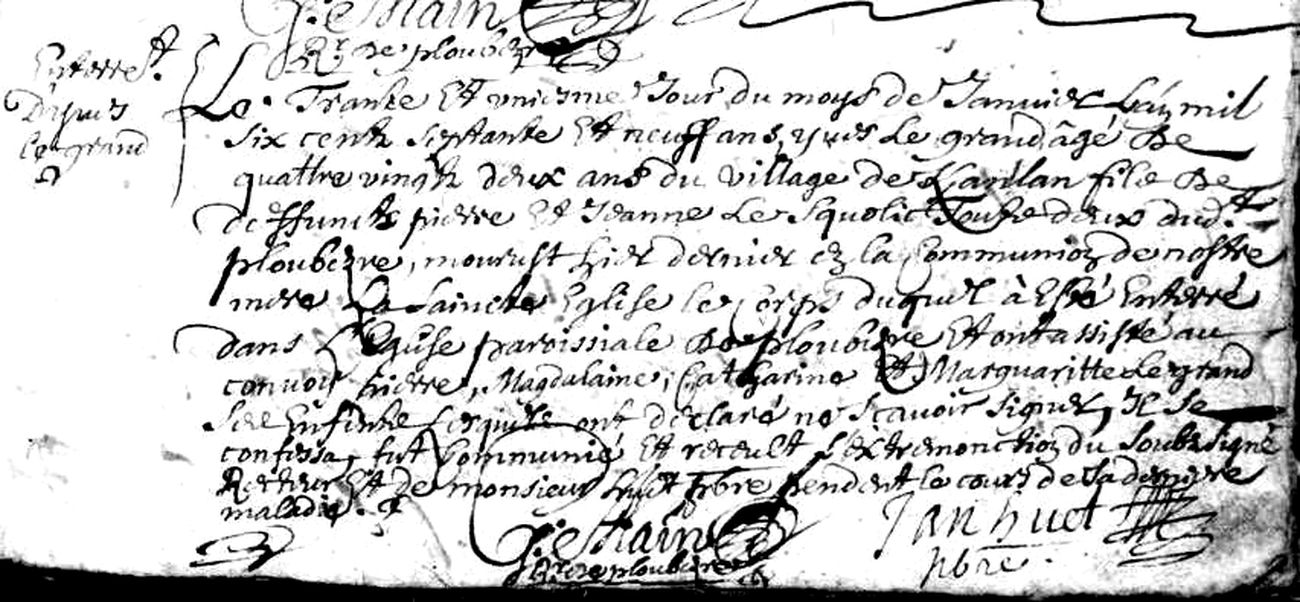 Rr de ploubezre
Enterremt
D'yves
le grand
Le Trante Et uniesme Jour du moys de Janvier L'an mil
six cents septante Et neuff ans, yves Le grand âgé De
quattre vingts deux ans du village de fils De
deffuncts pierre Et Jeanne Le Squolic Touts deux dudt
ploubezre, mourust hier dernier en la Communion de nostre
mere La Saincte Eglise le Corps duquel à Esté Enterré
dans L'Eglise paroissiale De ploubezre Et ont assisté au
convoit pierre, Magdalaine, Catharine Et Marguaritte Le grand
Ses Enfents Lesquels ont declaré ne Scavoir signer, Il se
confessa, fut Communié Et receult L'extremonction du Soubsigné
Recteur Et De monsieur huet pbre pendent le cours de Sa derniere
maladie.
Jan huet
pbre.
Rr de ploubezre